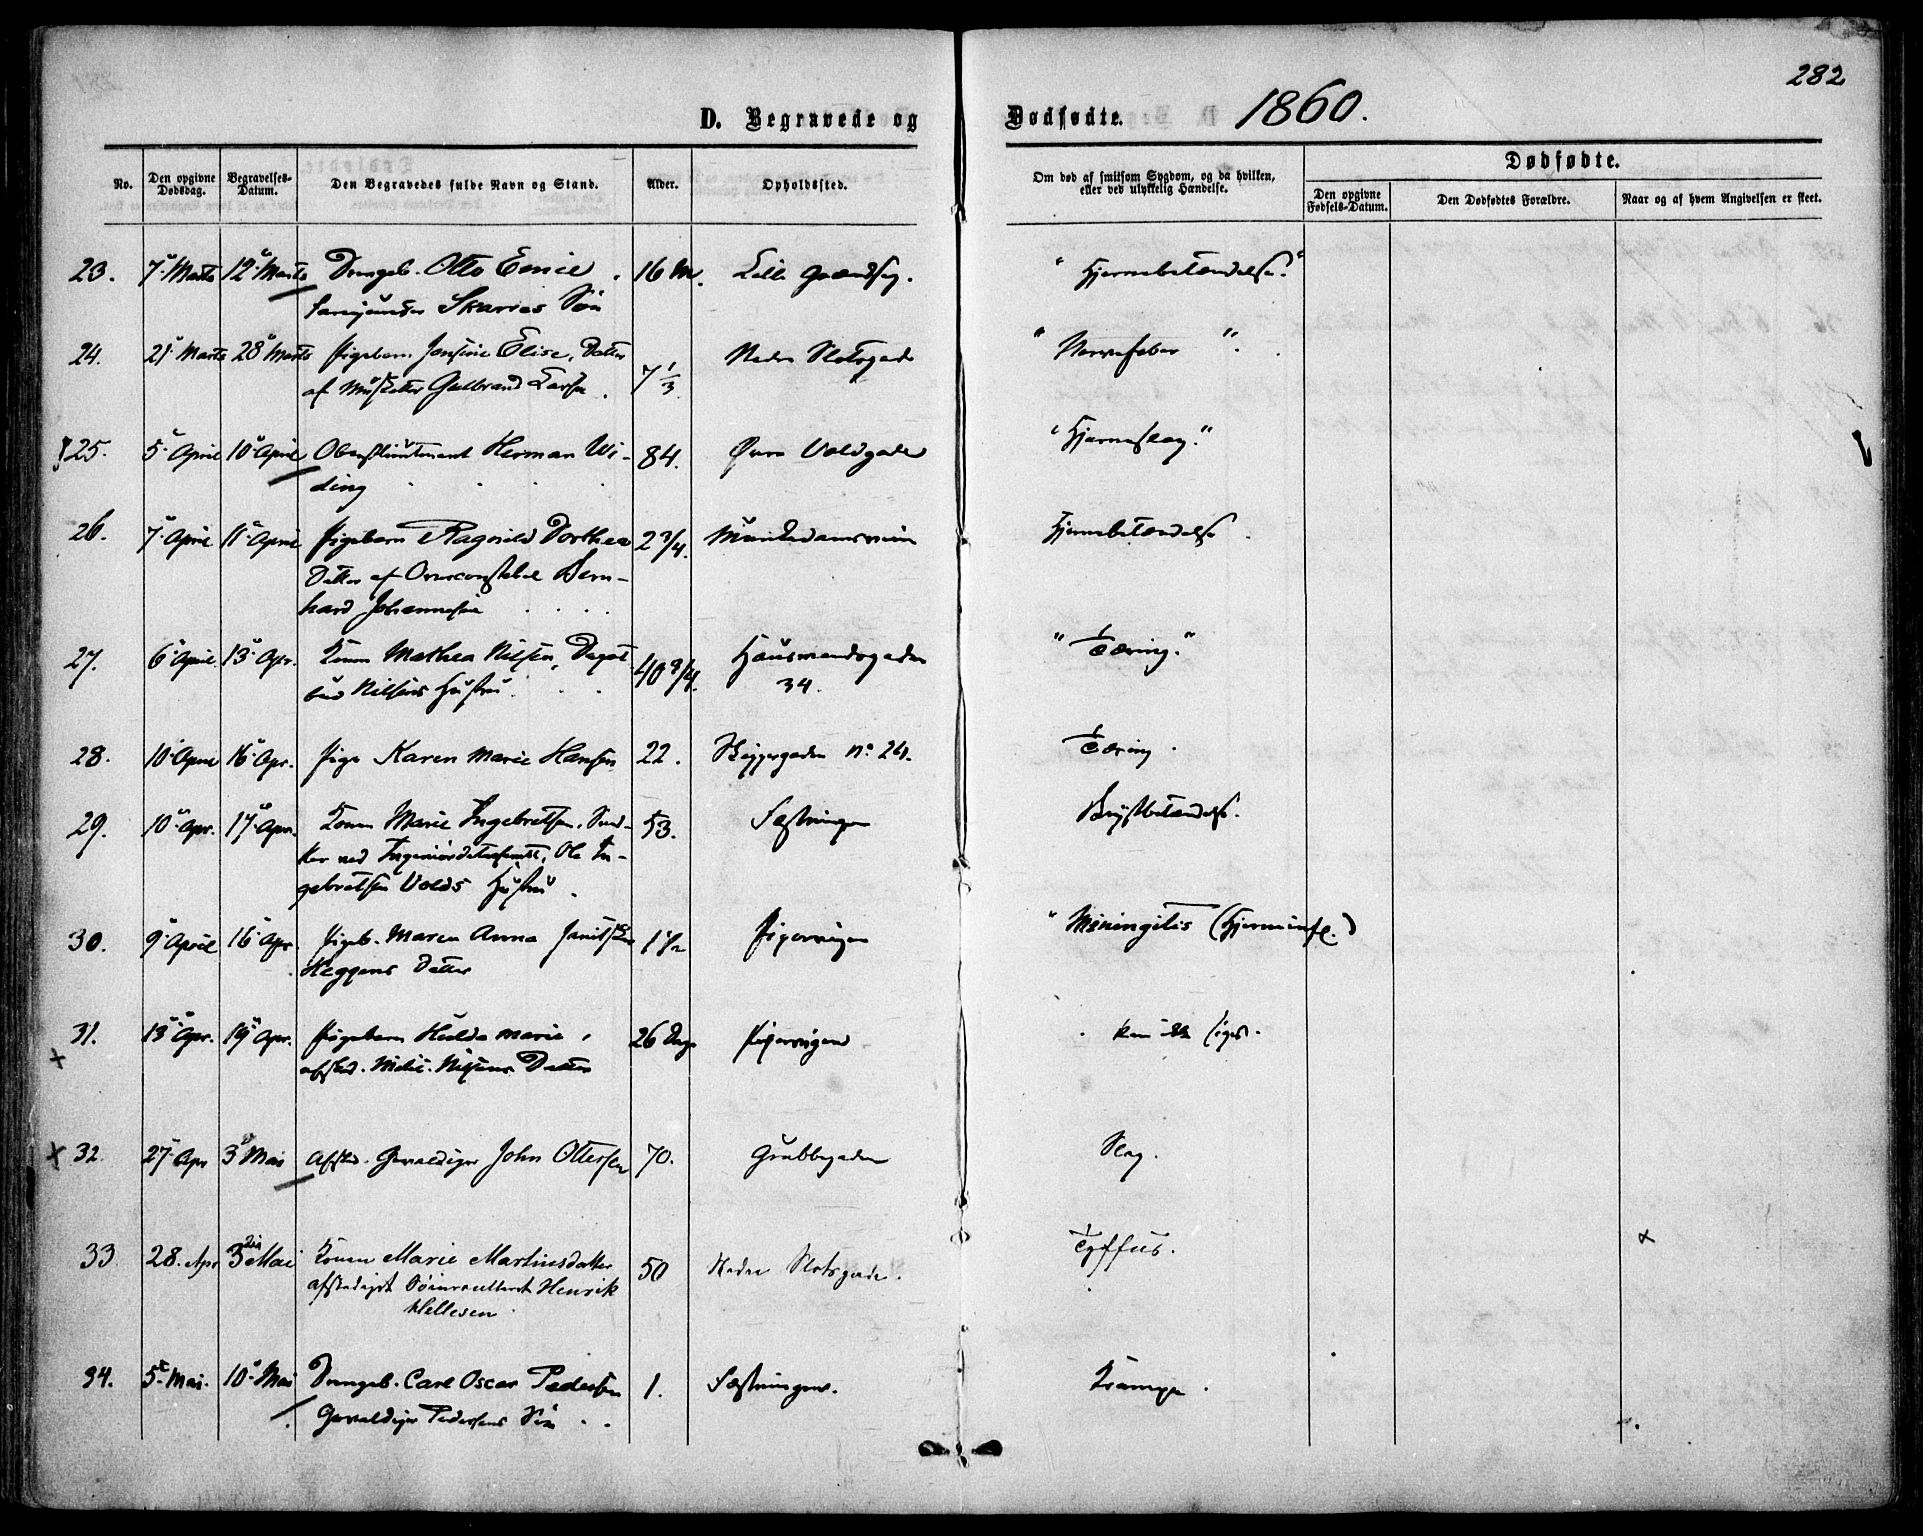 282
D. Begravede og Dødfødte. 1860.
No. Den opgivne Dødsdag. Begravelses-Datum. Den Begravedes fulde Navn og Stand. Alder. Opholdssted. Om død af smitsom Sygdom, og da hvilken, eller ved ulykkelig Hændelse. Dødfødte.
Den opgivne Fødsels-Datum. Den Dødfødtes Forældre. Naar og af hvem Angivelsen er skeet.
23. 7de Marts 12te Marts Drengeb. Otto Emil 16 M. Lille Grændseg. "Hjernebetændelse."
Skarres Søn
24. 21 Marts 28de Marts Pigebarn Elise, Datter 7 1/3 Nedre Slotsgade "Nervefeber".
af Musketer Gulbrand Larsen.
25. 5te April 10de April Oberstlieutenant Herman Wi- 84. Øvre Voldgade "Hjerneslag."
ding
26. 7de April 11te April Pigebarn Ragnild Dorthea 2 3/4. Munkedamsveien Hjernebetændelse.
Datter af Overconstabel Bern-
hard Johannesen
27. 6te April 13de Apr. Konen Mathea Nilsen, 40 3/4. Hausmandsgaden "Tæring."
Nilsens Hustru. 34.
28. 10de April 16de Apr. Pige Karen Marie Hansen 22. No 24. Tæring.
29. 10de Apr. 17de Apr. Konen Marie Ingebretsen, Sned- 53. Fæstningen Brystbetændelse.
ker ved Ole In-
gebretsen Volds Hustru.
30. 9de April 16de Apr. Pigeb. Maren Anna 1 1/2 Pipervigen "Meningitis (Hjerneinfl.)
Heggens Datter
31. 13de Apr. 19de Apr. Pigebarn Hulda Marie, 26 Dage Pipervigen kan ikke siges.
afsked. Nilsens Datter
32. 27 Apr 3de Mai Afsked. Gevaldiger John Ottersen 70. Grubbegaden Slag.
33 28. Apr 3die Mai Konen Marie Martinsdatter 50 Nedre Slotsgade. Tyffus.
afskediget Henrik
Hellesen
34. 5te Mai. 10de Mai Drengeb. Carl Oscar Pedersen 1. Fæstningen. Krampe.
Gevaldiger Pedersens Søn